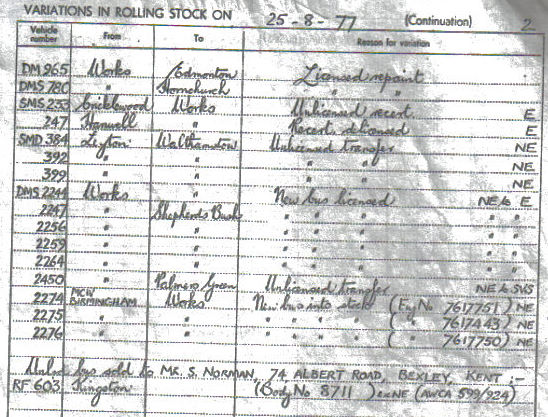 VARIATIONS IN ROLLING STOCK ON 25-8-77 (Continuation) 2
Vehicle number From To Reason for variation
DM 965 Works Edmonton Licensed repaint
DMS 780 " Hornchurch " "
SMS 233 Cricklewood Works Unlicensed recert. E
247 Hanwell " Recert. delicensed E
SMD 384 Leyton Walthamstow Unlicensed transfer NE
392 " " " " NE
399 " " " " NE
DMS 2244 Works " New bus licensed NE to E
2247 " Shepherds Bush " " " " "
2256 " " " " " " "
2259 " " " " " " "
2264 " " " " " " "
2450 " Palmers Green Unlicensed transfer NE to SVS
2274 MCW BIRMINGHAM Works New bus into stock (Eng No 7617751) NE
2275 " " " " " " (" 7617443) NE
2276 " " " " " " (" 7617750) NE
Unlic bus sold to MR. S. NORMAN, 74, ALBERT ROAD, BEXLEY, KENT :-
RF 603 Kingston (Body No 8711) ex NE (AWCA 599/924)